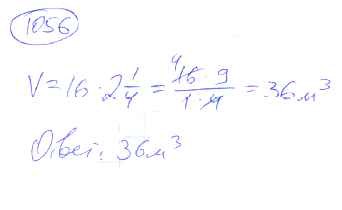 1056
V = 16 · 2 1/4 = 16 · 9 / 1 · 4 = 36 м³
Ответ: 36 м³